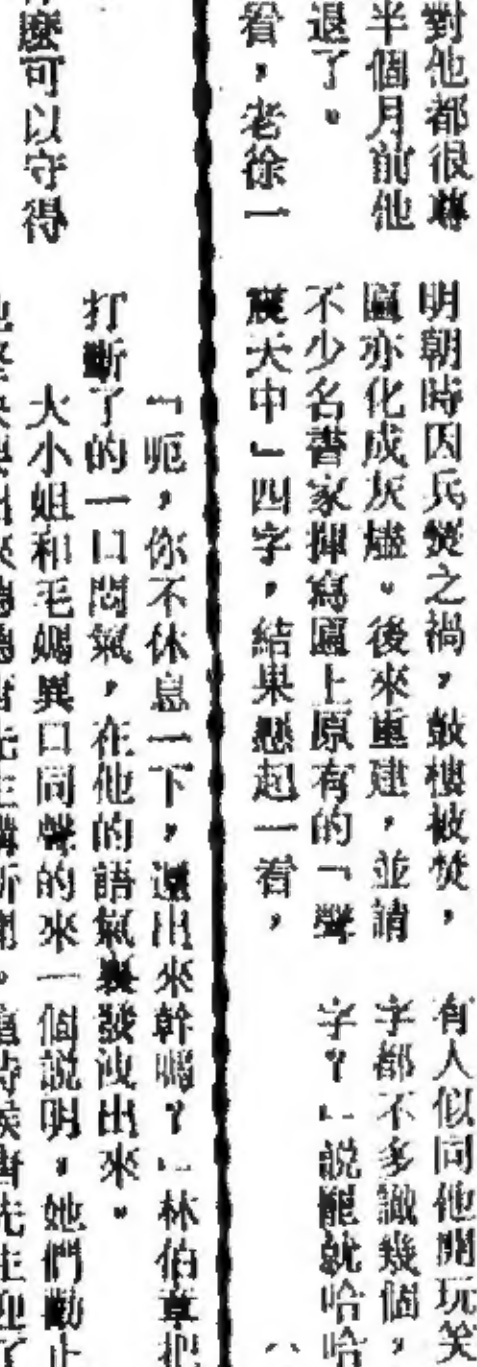 對他都很尊
半個月前他
退了。
看,老徐一
明朝時因兵燹之禍,鼓樓被焚,
匾亦化成灰燼。後來重建,並請
不少名書家揮寫匾上原有的「聲
震天中」四字,結果懸起一看,
有人似同他開玩笑
字都不多識幾個,
字?」說罷就哈哈
麼可以守得
「呃,你不休息一下,還出來幹嗎?」林伯把
打斷了的一口悶氣,在他的語氣裏發洩出來。
大小姐和毛媽異口同聲的來一個說明,她們勸止